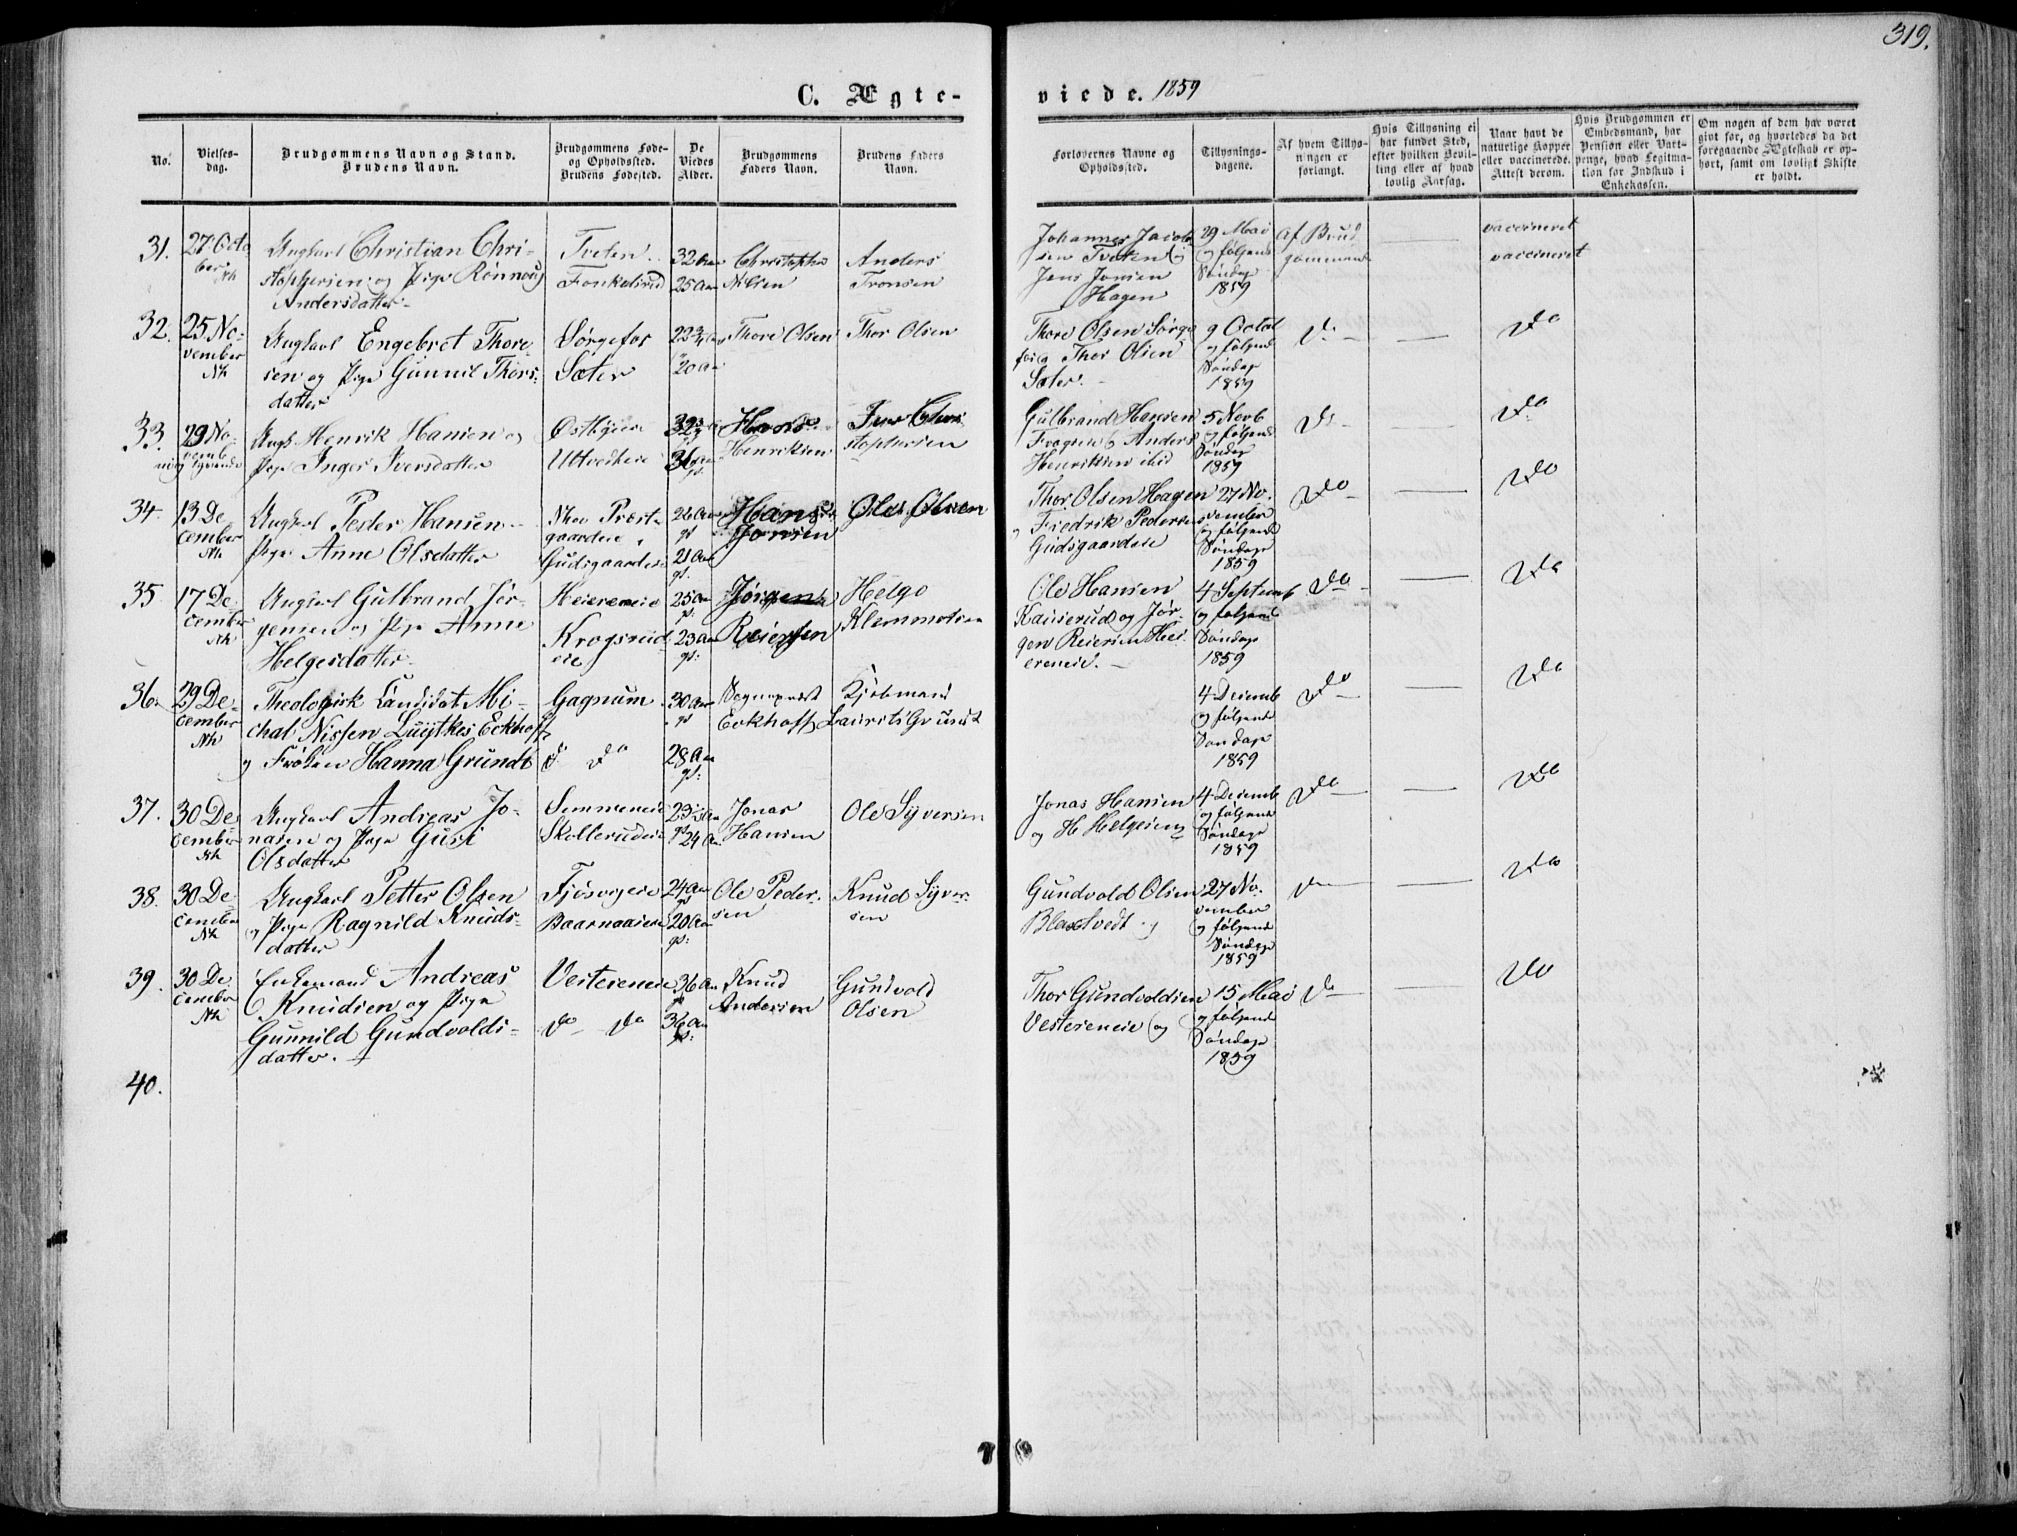 319.
C. Ægte-
viede. 1859
No.
Vielses-
dag.
Brudgommens Navn og Stand.
Brudens Navn.
Brudgommens Føde-
og Opholdssted.
Brudens Fødested.
De
Viedes
Alder.
Brudgommens
Faders Navn.
Brudens Faders
Navn.
Forlovernes Navne og
Opholdssted.
Tillysnings-
dagene.
Af hvem Tillys-
ningen er
forlangt.
Hvis Tillysning ei
har fundet Sted,
efter hvilken Bevil-
ling eller af hvad
lovlig Aarsag.
Naar havt de
naturlige Kopper
eller vaccinerede.
Attest derom.
Hvis Brudgommen er
Embedsmand, har
Pension eller Vart-
penge, hvad Legitima-
tion for Indskud i
Enkekassen.
Om nogen af dem har været
givt før, og hvorledes da det
foregaaende Ægteskab er op-
hørt, samt om lovligt Skifte
er holdt.
31.
27 Octo
ber
Nk
Ungkarl Christian Chri-
stophersen og Pige Rønnoug
Andersdatter
Tveten
Fonkelirud
32 Aar
25 Aar
Christopher
Nilsen
Anders
Tronsen
Johannes Jacob
sen Tveten og
Jens Jonsen
Hagen
29 Mai
og følgende
Søndage
1859
Af Brud
gommen
vaccineret
vaccineret
32.
25 No-
vember
Nk
Ungkarl Engebret Thore-
sen og Pige Gunnil Thors-
datter
Sørgefos
Sæter
20 Aar
Thore Olsen
Thor Olsen
Thore Olsen Sørge
fos og Thor Olsen
Sæter.
9 Octob
og følgende
Søndage
1859
Do
Do
33.
29 No-
vemb
Ungk. Henrik Hansen og
Pige Inger Iversdatter
Østbyeie
Hans
Henriksen
Iver Chri
stophersen
Gulbrand Hansen
og Anders
Henriksen ibid
5 Novb
og følgende
Søndage
1859
Do
Do
34.
13 De
cember
Nk
Ungkarl Peder Hansen
Pige Anne Olsdatter
Præst-
gaardeie
Gudsgaardeie
26 Aar
gl
21 Aar
gl.
Hans
Jonsen
Ole Olsen
Thor Olsen Hagen
og Fredrik Pedersen
Gudsgaardeie
27 No-
vember
og følgende
Søndage
1859
Do
Do
35
17 De
cember
Nk
Ungkarl Gulbrand Jør-
gensen og Pige Anne
Helgesdatter
Heiereneie
Krogsrud
eie
25 Aar
gl.
23 Aar
gl:
Jørgen
Reiersen
Helge
Klemmetsen
Ole Hansen
Kauserud og Jør-
gen Reiersen Hei-
ereneie.
4 Septemb
og følgende
Søndage
1859
Do
Do
36.
29 De-
cember
Nk
Theologisk Candidat Mi-
chal Nissen Luytkes Eckhoff
og Frøken Hanna Grundt
Gagnum
do do
30 Aar
gl
28 Aar
gl:
Sognepræst
Eckhoff
Kjøbmand
Laurits Grundt
4 Decemb
og følgende
Søndage
1859
Do
Do
37.
30 De-
cember
Nk
Ungkarl Andreas Jo-
nasen og Pige Guri
Olsdatter
Semmeneie
Skollerudeie
24 Aar
Jonas
Hansen
Ole Syversen
Jonas Hansen
og H Helgesen
4 Decemb
og følgende
Søndage
1859
Do
Do
38.
30 De
cember
Nk
Ungkarl Petter Olsen
og Pige Ragnild Knuds-
datter
Baarnaaseie
24 Aar
gl
20 Aar
gl.
Ole Peder-
sen
Knud Syver-
sen
Gundvold Olsen
Blaxtvedt og
27 No-
vember
og følgende
Søndage
1859
Do
Do
39.
30 De
cember
Nk
Enkemand Andreas
Knudsen og Pige
Gunnild Gundvolds-
datter.
Vestereneie
Do Do
36 Aar
gl
36 Aar
gl:
Knud
Andersen
Gundvold
Olsen
Thor Gundvoldsen
Vestereneie og
15 Mai
og følgende
Søndage
1859
Do
Do
40.